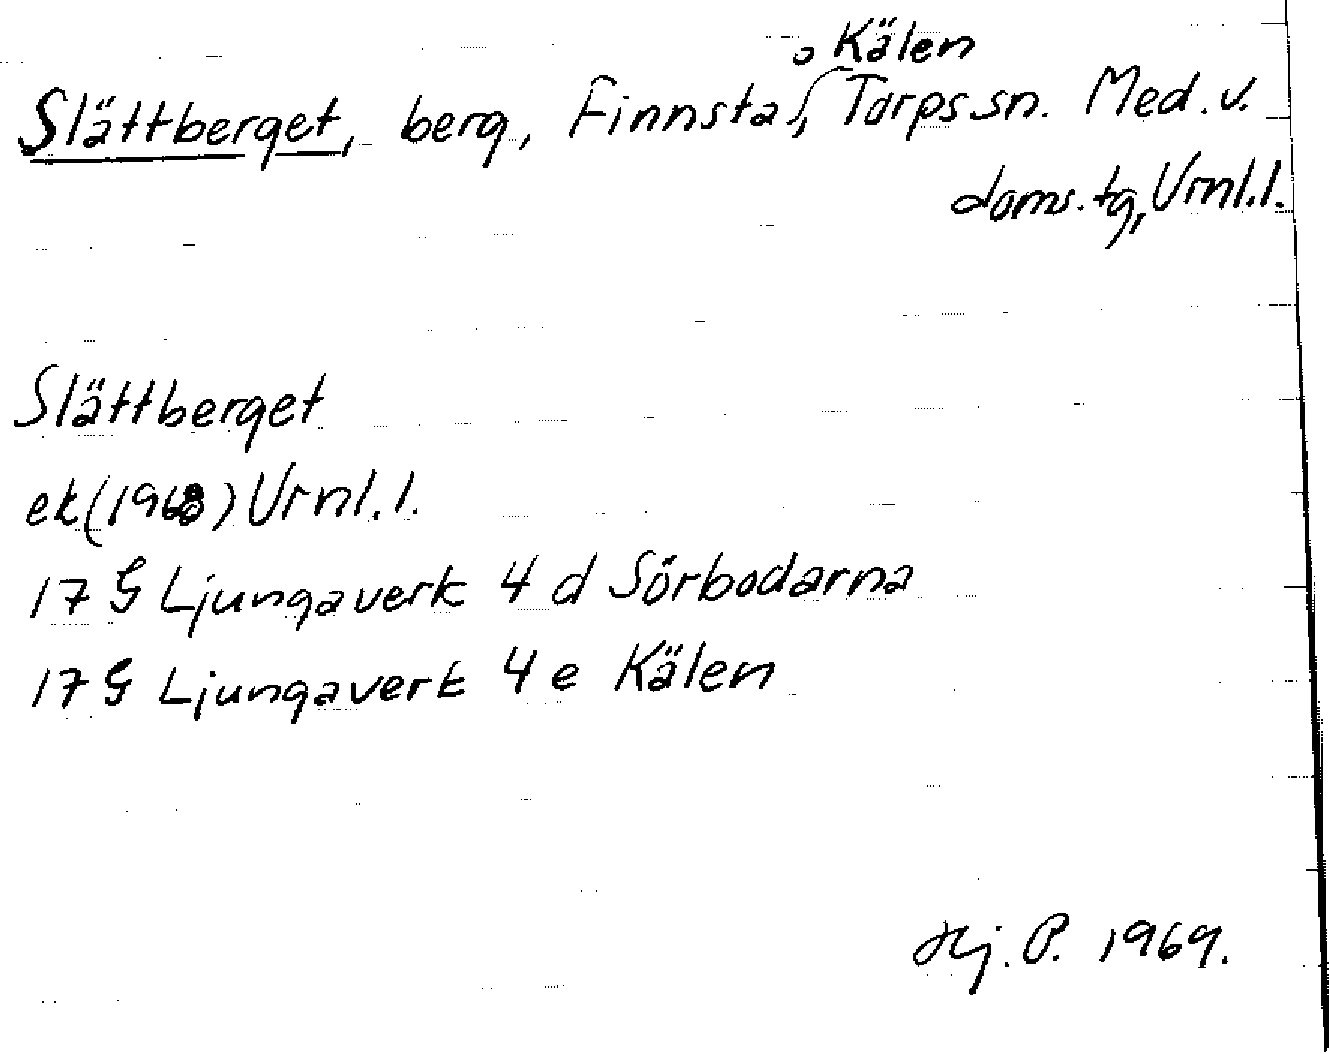 Slättberget, berg, Finnsta o Kälen, Torps sn. Med. v.
doms. tg, Vrnl. l.
Slättberget
ek (1968) Vrnl. l.
17 G Ljungaverk 4 d Sörbodarna
17 G Ljungaverk 4 e Kälen
Hj. P. 1969.